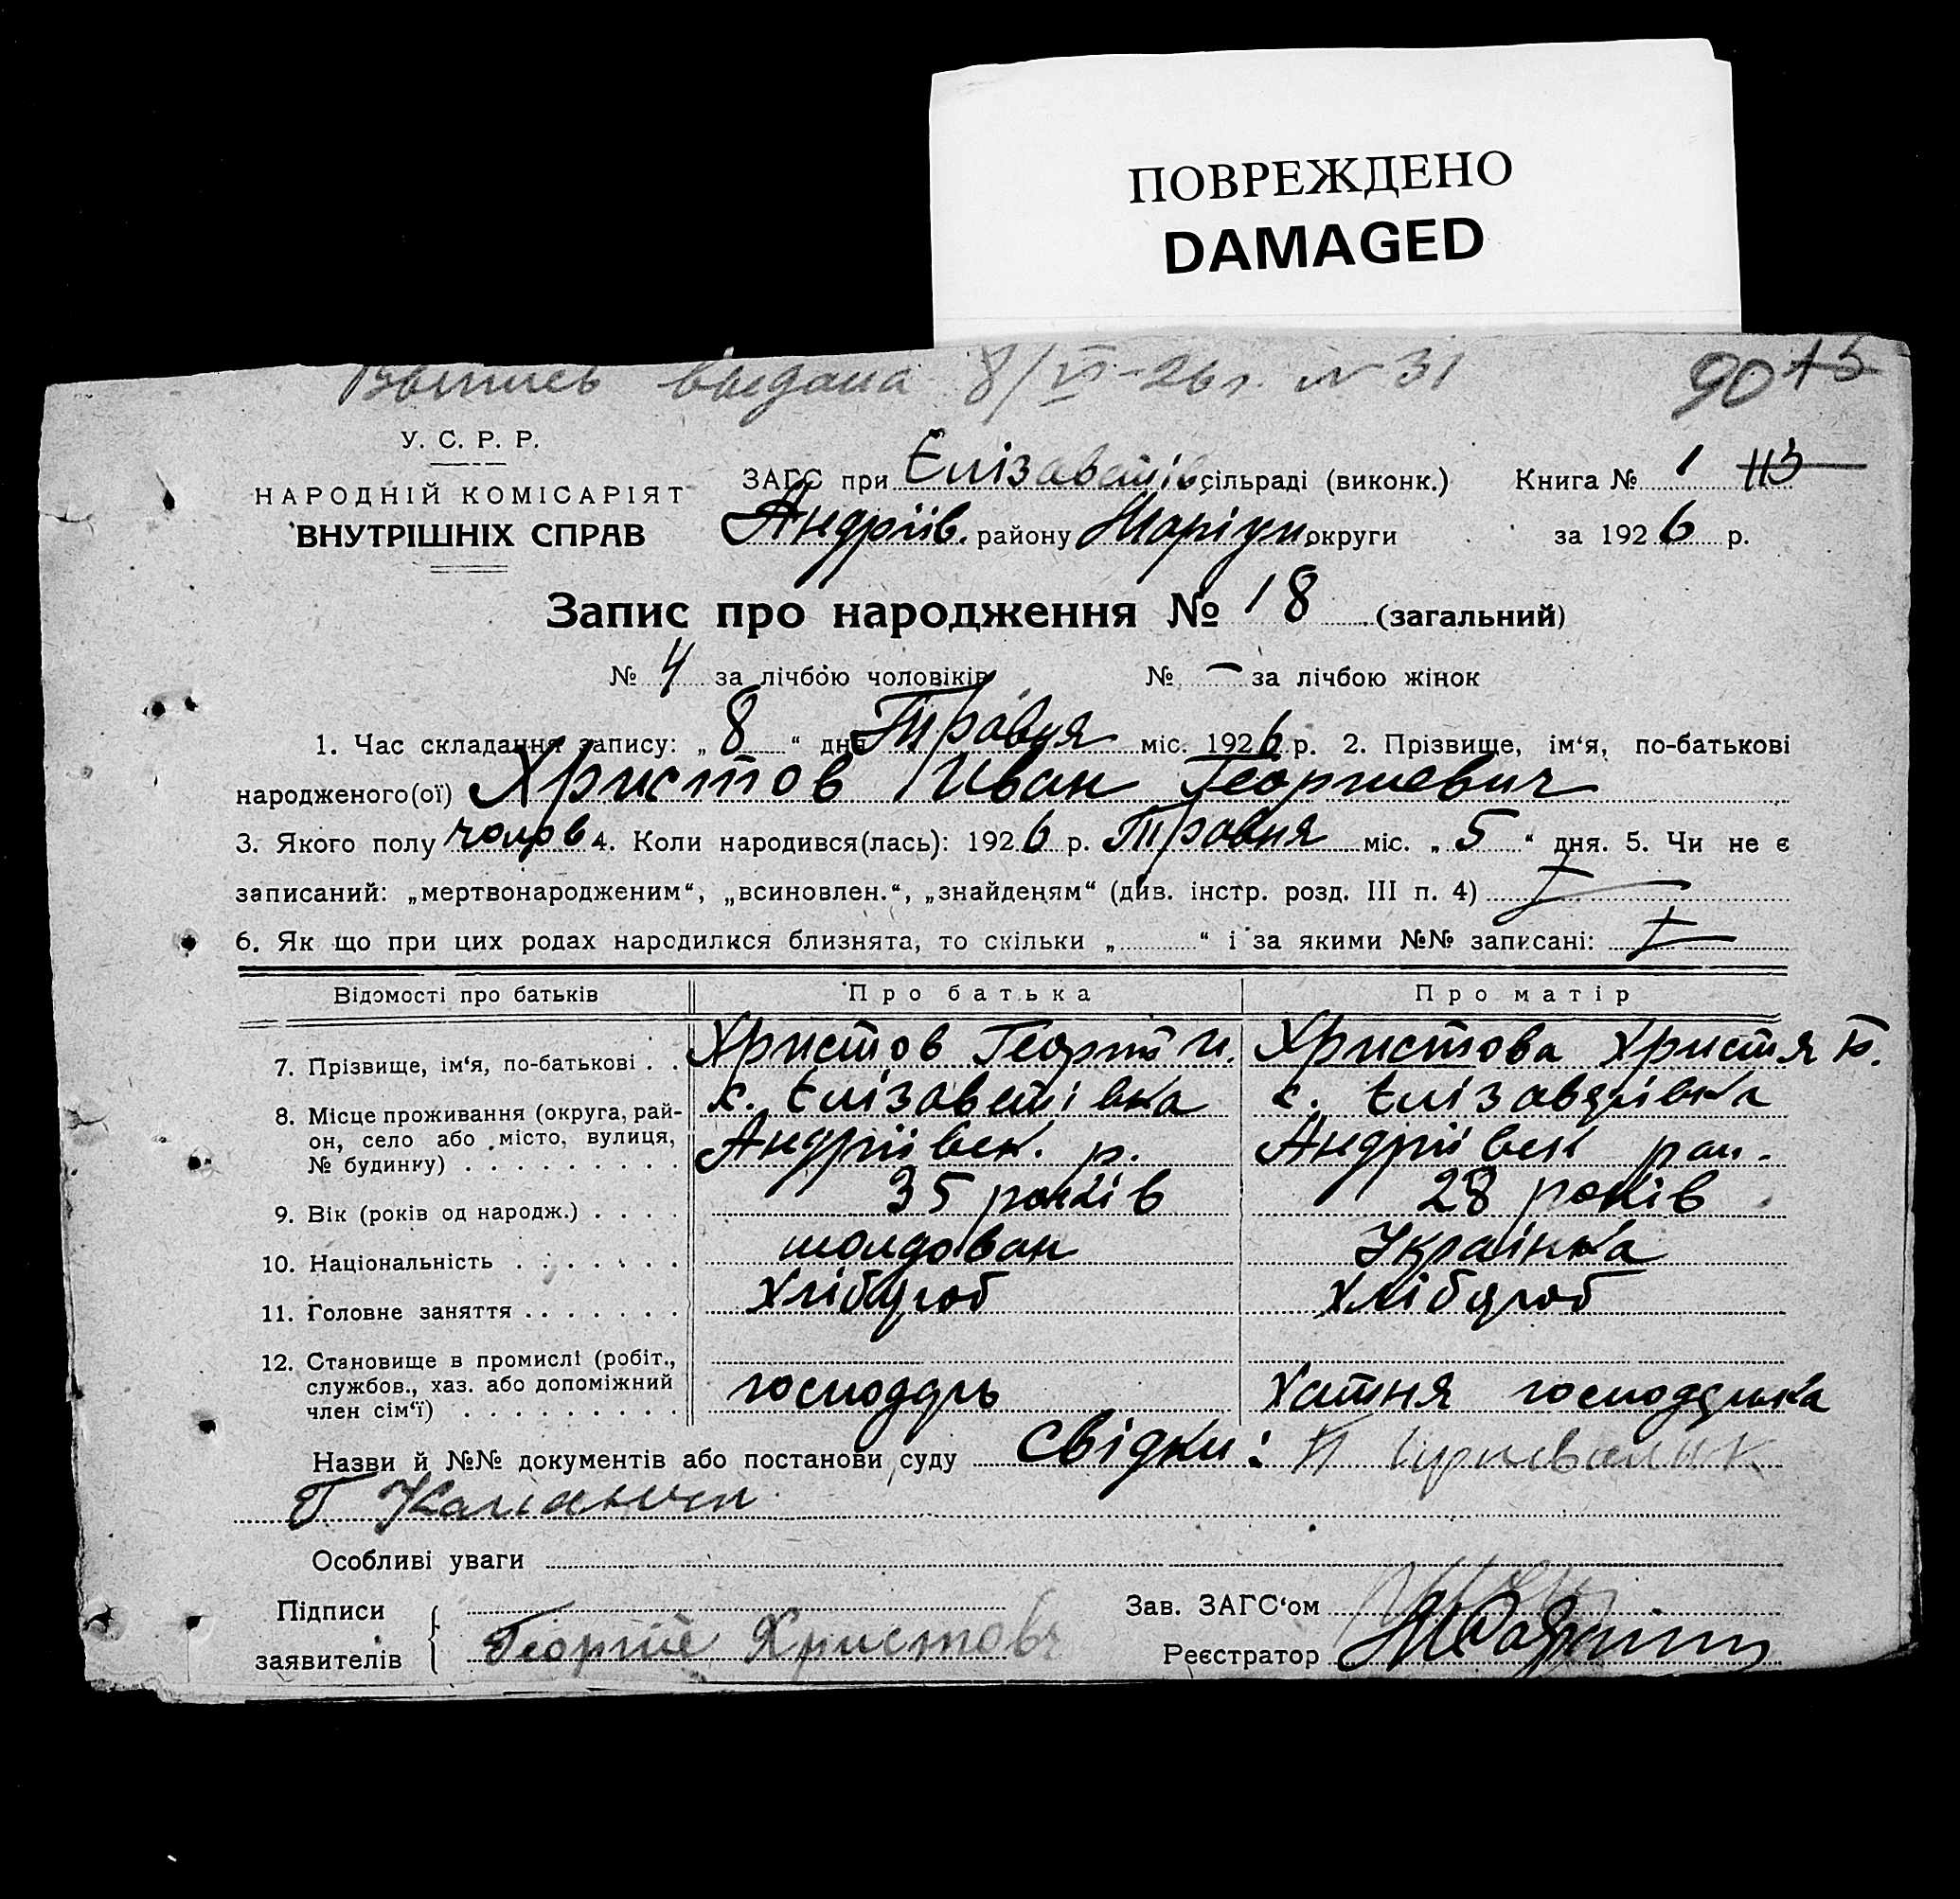 ПОВРЕЖДЕНО
DAMAGED
Выпись выдана 8/VI-26 г. № 31
90 15
У. С. Р. Р.
НАРОДНІЙ КОМІСАРІЯТ
ВНУТРІШНІХ СПРАВ
ЗАГС при Єлізаветів. сільраді (виконк.)
Андріїв. району Маріуп. округи
Книга № 1 113
за 1926 р.
Запис про народження № 18 (загальний)
№ 4 за лічбою чоловіків № — за лічбою жінок
1. Час складання запису: „ 8 “ дня Травня міс. 1926 р. 2. Прізвище, ім‘я, по-батькові
народженого(ої) Христов Иван Георгиевич
3. Якого полу чолов 4. Коли народився(лась): 1926 р. Травня міс. „ 5 “ дня. 5. Чи не є
записаний: „мертвонародженим“, „всиновлен.“, „знайденям“ (див. інстр. розд. III п. 4)
6. Як що при цих родах народилися близнята, то скільки „ “ і за якими №№ записані:
Відомості про батьків Про батька Про матір
7. Прізвище, ім‘я, по-батькові . . Христов Георгій И. Христова Христя
8. Місце проживання (округа, рай- с. Єлізаветівка с. Єлізаветівка
он, село або місто, вулиця, Андріївск. р. Андріївск рай.
№ будинку)
9. Вік (років од народж.) . . . . 35 років 28 років
10. Національність . . . . . . . молдован Українка
11. Головне заняття . . . . . . . Хлібороб Хлібороб
12. Становище в промислі (робіт.,
службов., хаз. або допоміжний господарь Хатня господарка
член сім‘ї) . . . . . . . . .
Назви й №№ документів або постанови суду Свідки:
Особливі уваги
Підписи
заявителів Георгій Христовъ
Зав. ЗАГС‘ом
Реєстратор